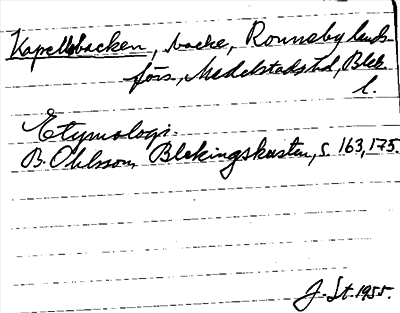 Kapellsbacken, backe, Ronneby lands-
förs., Medelstads hd, Blek.
l.
Etymologi.
B. Ohlsson, Blekingskusten, s. 163, 175.
J. St. 1955.